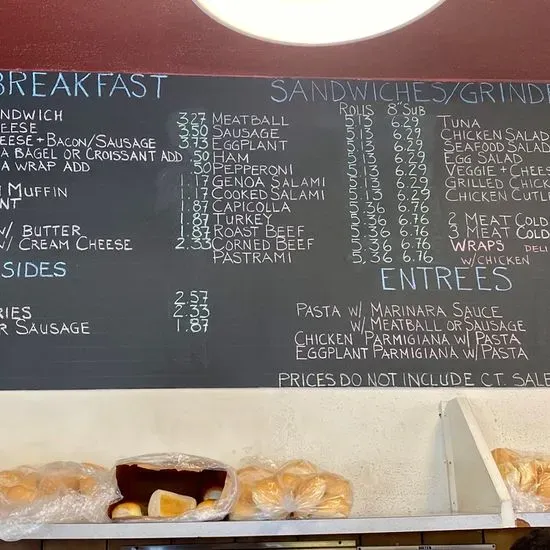 BREAKFAST
NDWICH 3.27
HEESE 3.50
HEESE + BACON/SAUSAGE 3.73
A BAGEL OR CROISSANT ADD .50
A WRAP ADD .50
1.17
N MUFFIN 1.17
NT 1.87
1.87
W/ BUTTER 1.87
W/ CREAM CHEESE 2.33
SIDES
2.57
RIES 2.33
R SAUSAGE 1.87
SANDWICHES/GRINDE
ROLLS 8" SUB
MEATBALL 5.13 6.29
SAUSAGE 5.13 6.29
EGGPLANT 5.13 6.29
HAM 5.13 6.29
PEPPERONI 5.13 6.29
GENOA SALAMI 5.13 6.29
COOKED SALAMI 5.13 6.29
CAPICOLLA 5.36 6.76
TURKEY 5.36 6.76
ROAST BEEF 5.36 6.76
CORNED BEEF 5.36 6.76
PASTRAMI 5.36 6.76
TUNA
CHICKEN SALAD
SEAFOOD SALAD
EGG SALAD
VEGGIE + CHEES
GRILLED CHICK
CHICKEN CUTL
2 MEAT COLD
3 MEAT COLD
WRAPS DELI
W/CHICKEN
ENTREES
PASTA W/ MARINARA SAUCE
W/ MEATBALL OR SAUSAGE
CHICKEN PARMIGIANA W/ PASTA
EGGPLANT PARMIGIANA W/ PASTA
PRICES DO NOT INCLUDE CT. SALE